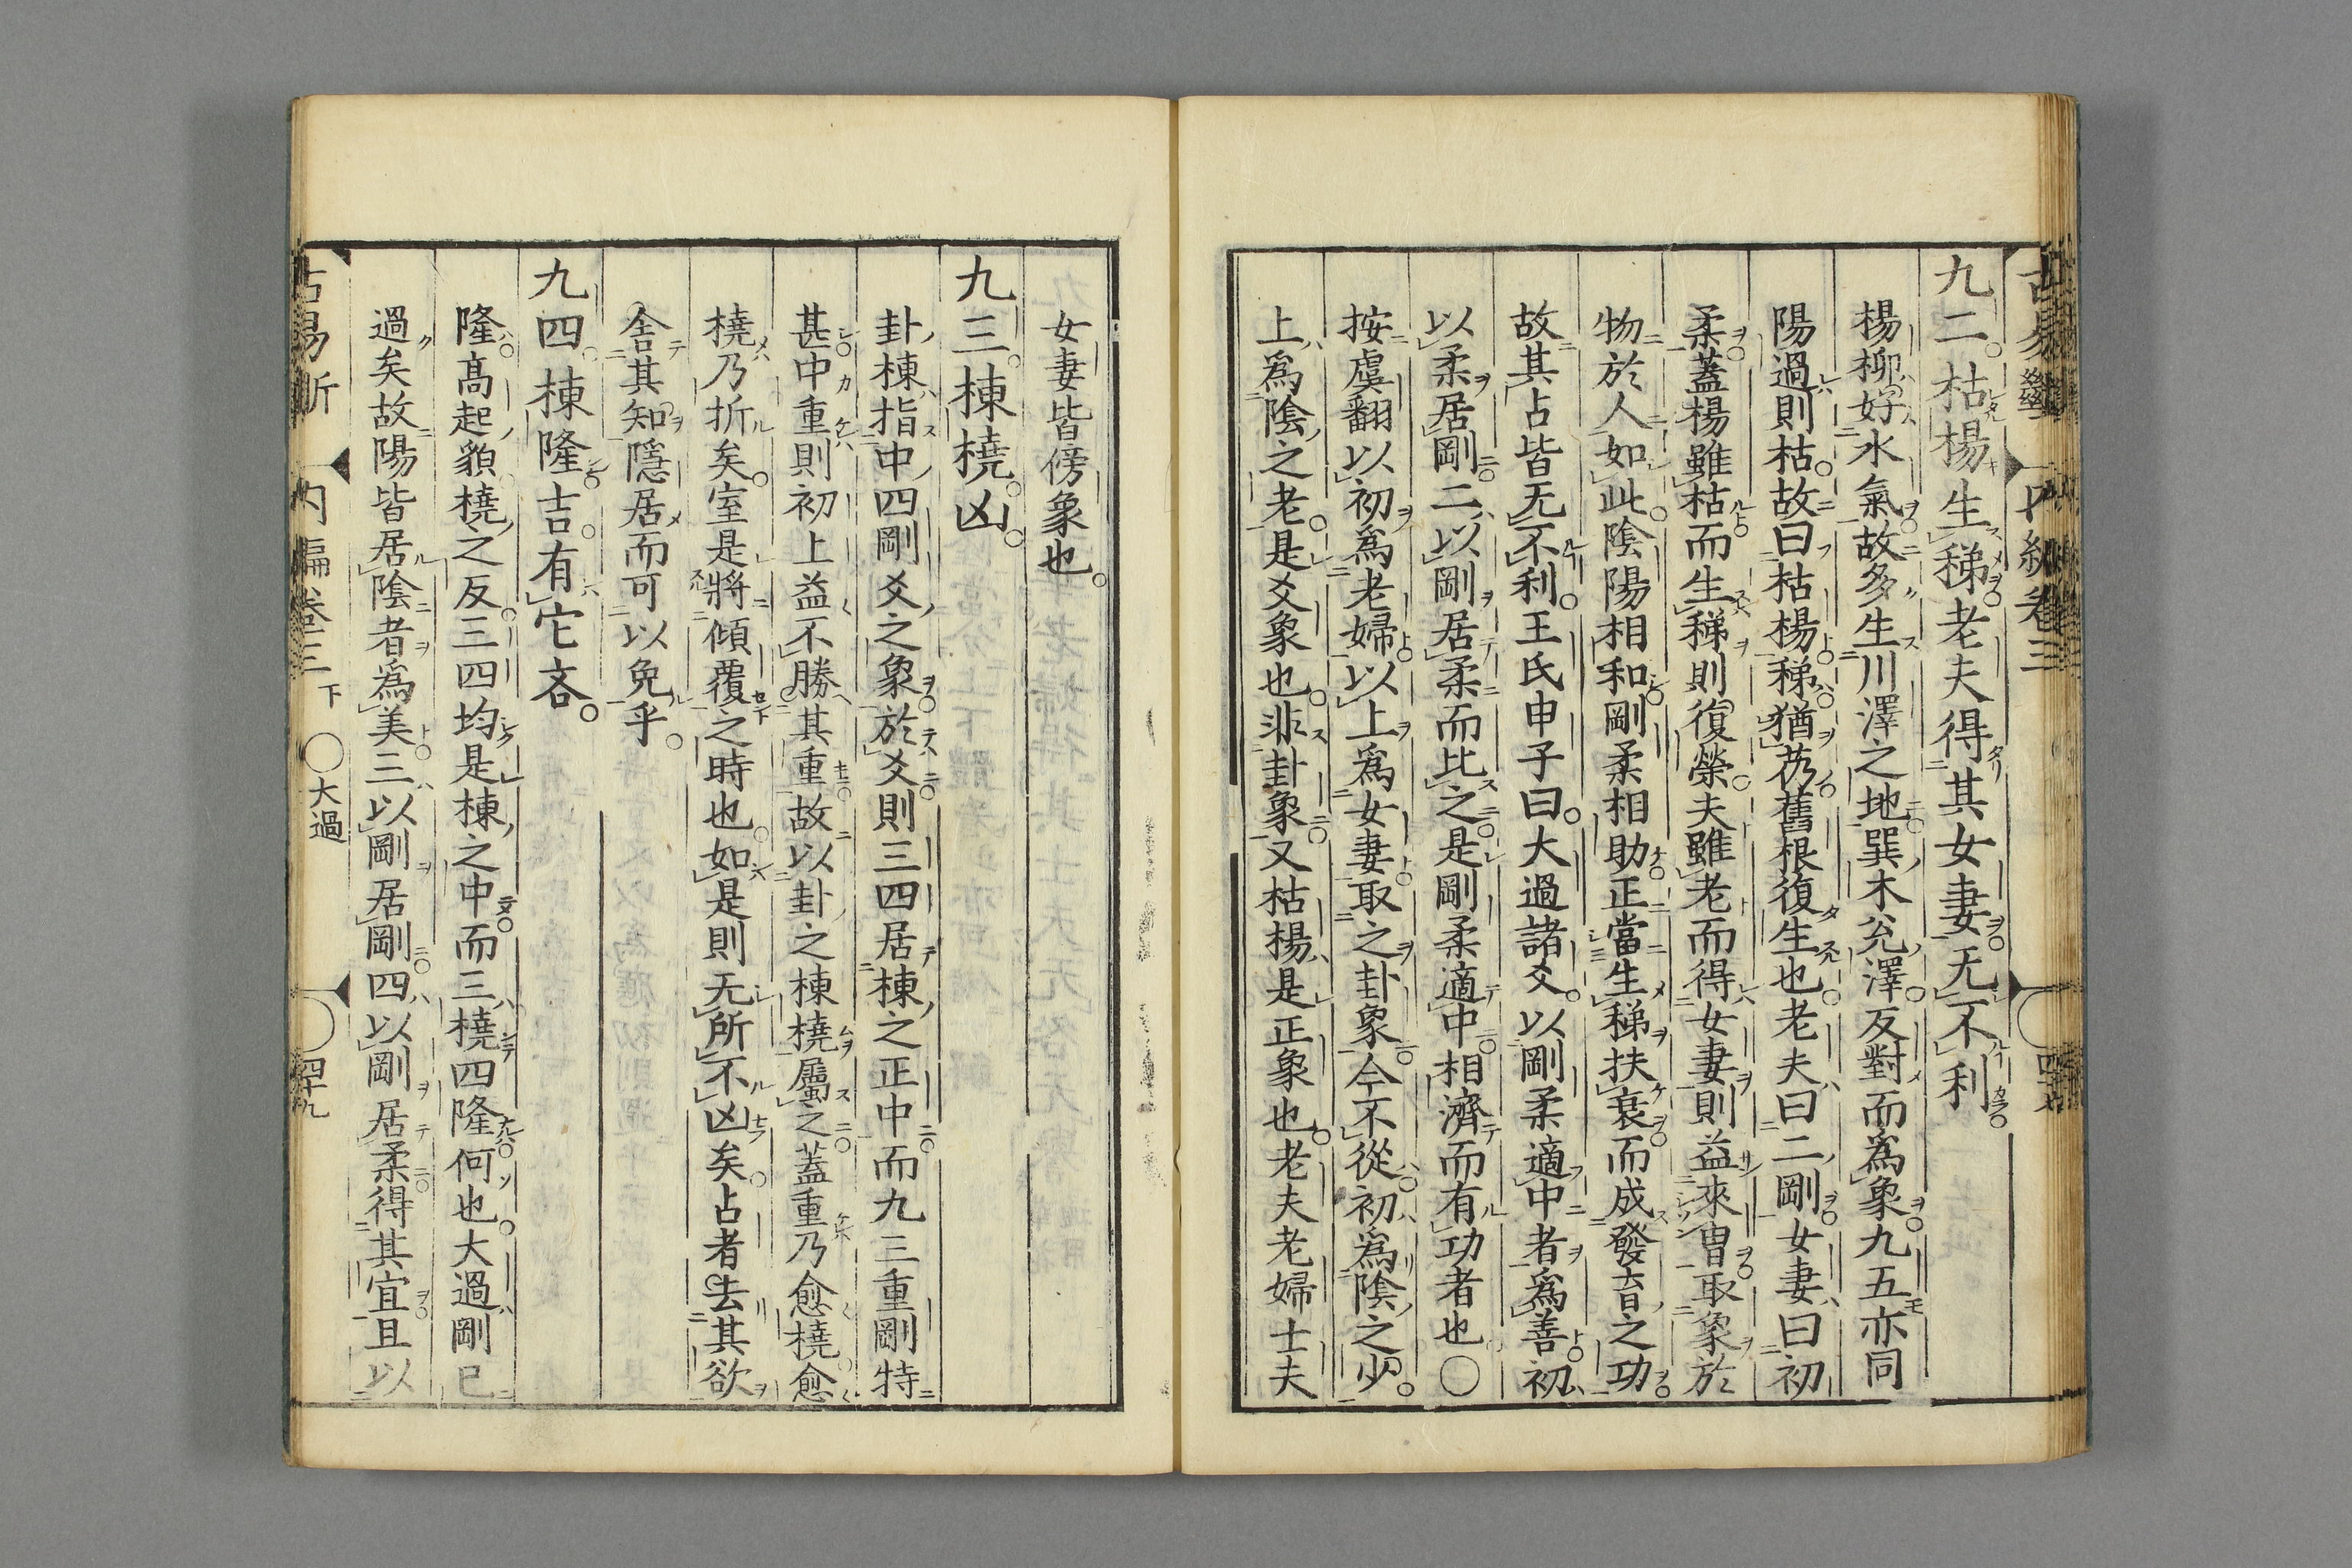 九二。枯楊生稊。老夫得其女妻。无不利
楊柳好水氣。故多生川澤之地。巽木兊澤。反對而為象。九五亦同
陽過則枯。故曰枯楊。稊。猶芿。舊根復生也。老夫曰二剛。女妻曰初
柔。蓋楊雖枯。而生稊則復榮。夫雖老而得女妻則益來曽。取象於
物於人如此。陰陽相和。剛柔相助。正當生稊扶衰。而成發育之功。
故其占皆无不利。王氏申子曰。大過諸爻。以剛柔適中者為善。初
以柔居剛。二以剛居柔而比之。是剛柔適中。相濟而有功者也〇
按虞翻以初為老婦。以上為女妻。取之卦象。今不從。初為陰之少。
上為陰之老。是爻象也。非卦象。又枯楊是正象也。老夫老婦士夫
女妻皆傍象也。
九三。棟橈。凶。
卦棟指中四剛爻之象。於爻。則三四居棟之正中。而九三重剛特
甚。中重則初上益不勝其重。故以卦之棟橈屬之。蓋重乃愈橈。愈
橈乃折矣。室是將傾覆之時也。如是則无所不凶矣。占者去其欲
舍其知。隱居而可以免乎。
九四。棟隆。吉。有它吝。
隆。高起貌。橈之反。三四均是棟之中。而三橈四隆。何也。大過剛已
過矣。故陽皆居陰者為美。三以剛居剛。四以剛居柔。得其宜。且以
古易斷
内編卷三下
〇大過
四十九